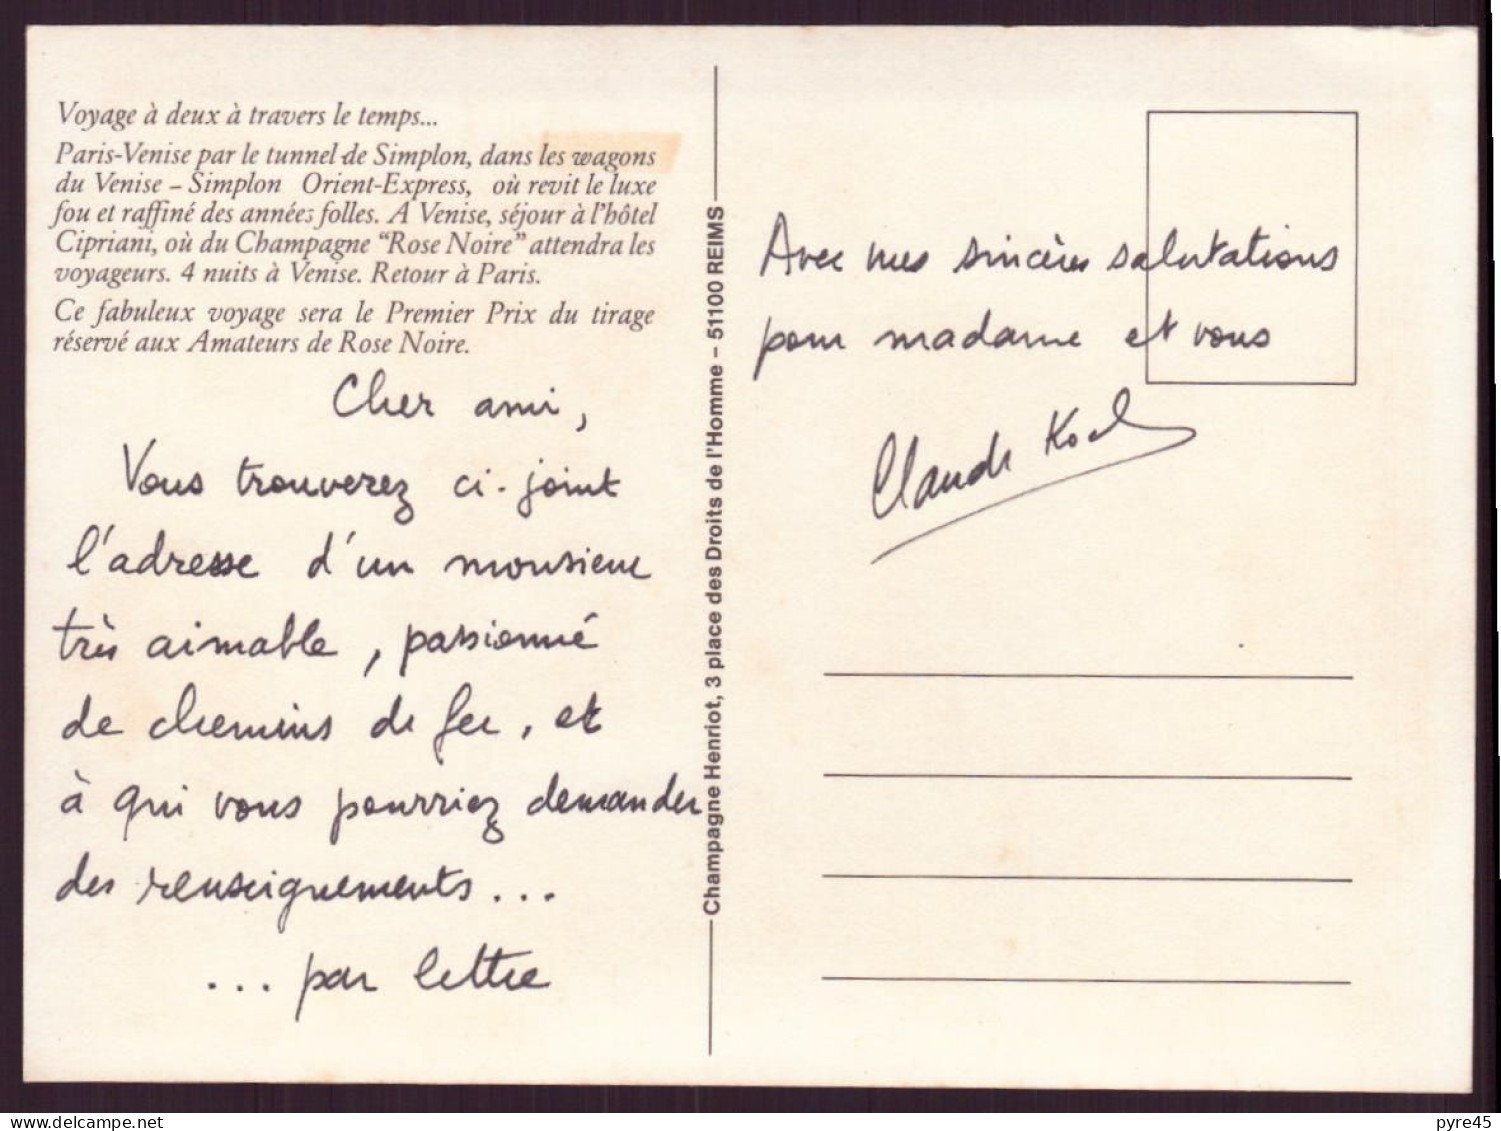 Voyage à deux à travers le temps...
Paris-Venise par le tunnel de Simplon, dans les wagons
du Venise – Simplon Orient-Express, où revit le luxe
fou et raffiné des années folles. A Venise, séjour à l'hôtel
Cipriani, où du Champagne “Rose Noire” attendra les
voyageurs. 4 nuits à Venise. Retour à Paris.
Ce fabuleux voyage sera le Premier Prix du tirage
réservé aux Amateurs de Rose Noire.
Cher ami,
Vous trouverez ci-joint
l'adresse d'un monsieur
très aimable, passionné
de chemins de fer, et
à qui vous pourriez demander
des renseignements...
... par lettre
Champagne Henriot, 3 place des Droits de l'Homme – 51100 REIMS
Avec mes sincères salutations
pour madame et vous
Claude Koch
delcampe.net
pyre45